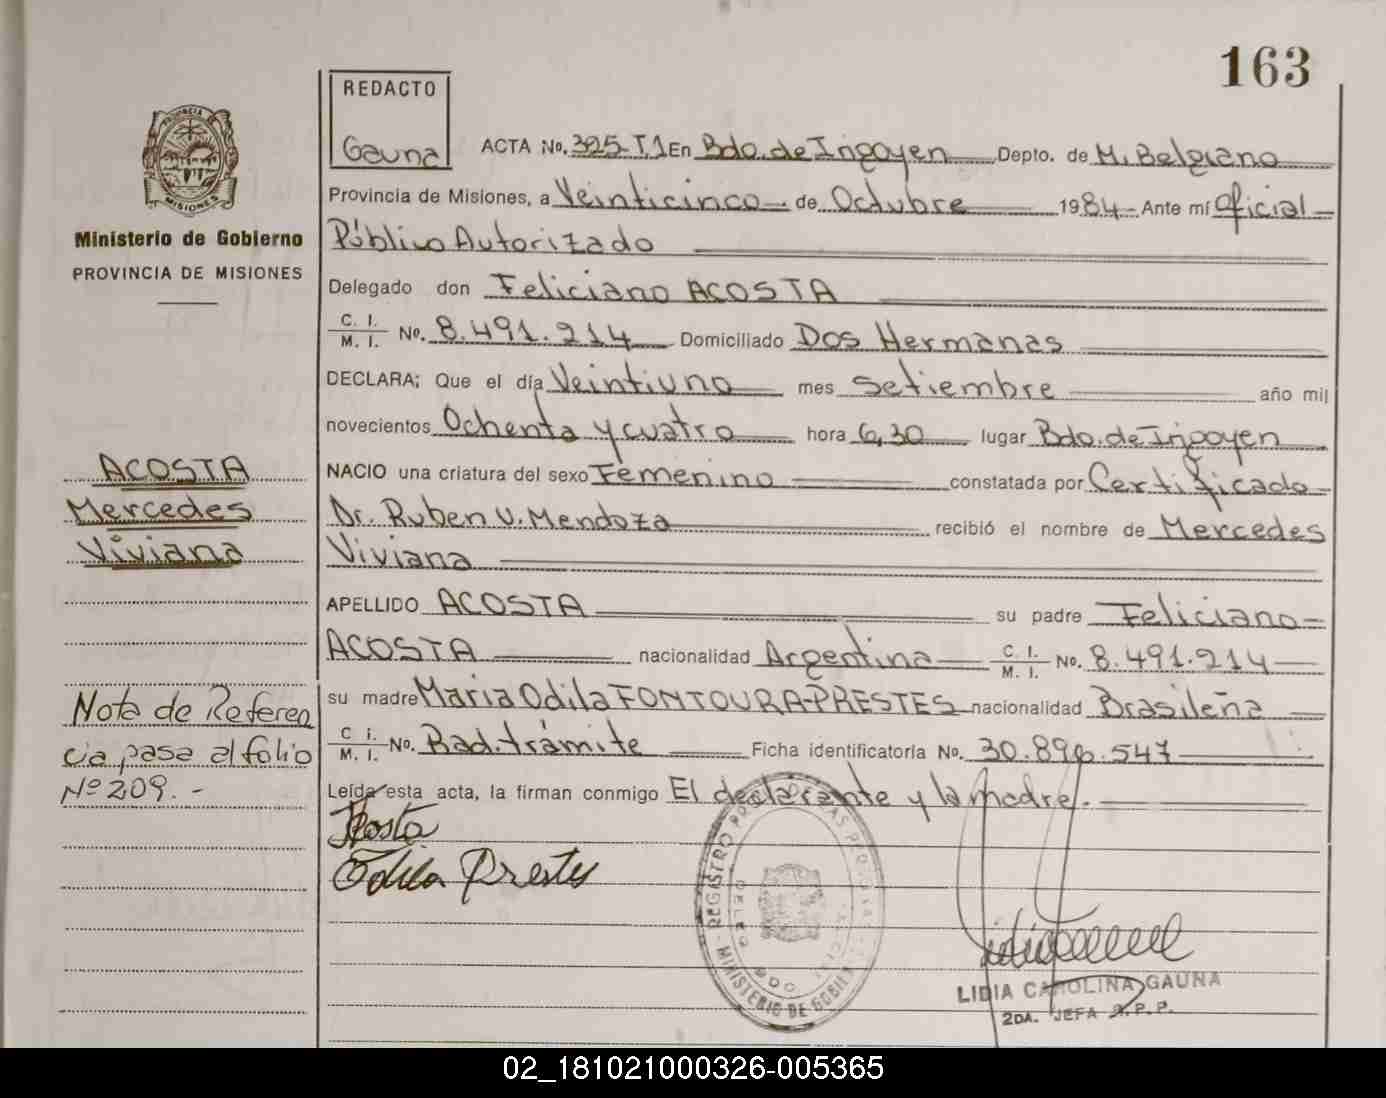 163
REDACTO
Gauna
PROVINCIA DE
MISIONES
Ministerio de Gobierno
PROVINCIA DE MISIONES
ACTA No. 325-T,1 En Bdo. de Irigoyen Depto. de M. Belgrano
Provincia de Misiones, a Veinticinco de Octubre 1984 - Ante mí Oficial
Público Autorizado
Delegado don Feliciano ACOSTA
C. I. / M. I. No. 8.491.214 Domiciliado Dos Hermanas
DECLARA; Que el día Veintiuno mes Setiembre año mil
novecientos Ochenta y cuatro hora 6,30 lugar Bdo. de Irigoyen
NACIO una criatura del sexo Femenino constatada por Certificado
Dr. Ruben V. Mendoza recibió el nombre de Mercedes
Viviana
APELLIDO ACOSTA su padre Feliciano
ACOSTA nacionalidad Argentina C. I. / M. I. No. 8.491.214
su madre Maria Odila FONTOURA-PRESTES nacionalidad Brasileña
C. i. / M. I. No. Rad. trámite Ficha identificatoria No. 30.896.547
Leída esta acta, la firman conmigo El declarante y la madre.
ACOSTA
Mercedes
Viviana
Nota de Referen
cia pasa al folio
Nº 209.-
Acosta
Odila Prestes
REGISTRO
MINISTERIO DE GOBIER
LIDIA CAROLINA GAUNA
2DA. JEFA R.P.P.
02_181021000326-005365